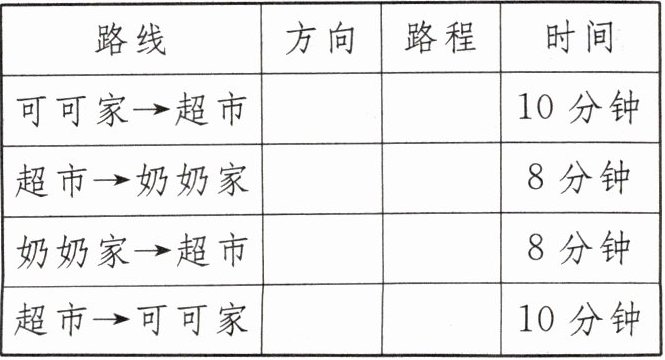 路线 方向 路程 时间
可可家→超市 10 分钟
超市→奶奶家 8 分钟
奶奶家→超市 8 分钟
超市→可可家 10 分钟